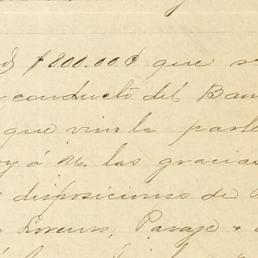 $800.00 que s
conducto del Ban
que vino la parte
oy á U. las gracias
disposiciones de
Lorenzo, Pasaje +